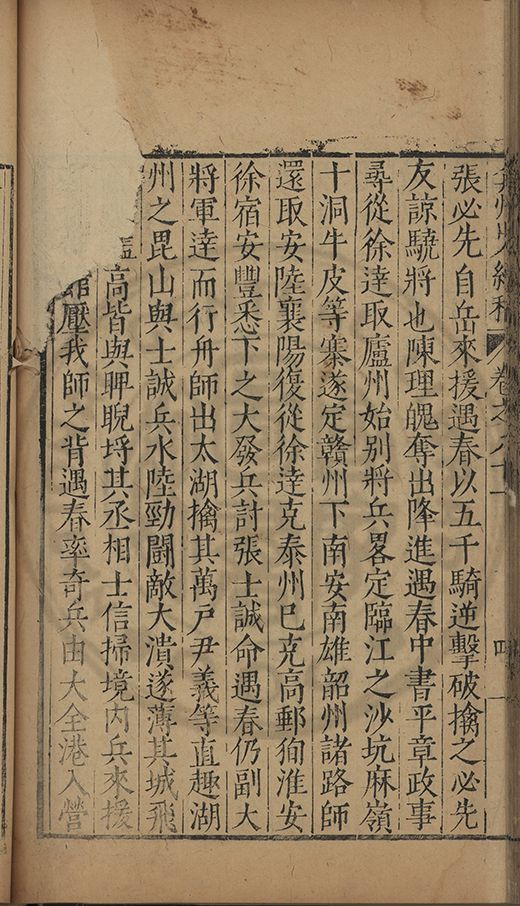 州人續稿 卷之八十一 四
張必先自岳來援遇春以五千騎逆擊破擒之必先
友諒驍將也陳理魄奪出降進遇春中書平章政事
尋從徐達取廬州始別將兵畧定臨江之沙坑麻嶺
十洞牛皮等寨遂定贛州下南安南雄韶州諸路師
還取安陸襄陽復從徐達克泰州巳克高郵狥淮安
徐宿安豐悉下之大發兵討張士誠命遇春仍副大
將軍達而行舟師出太湖擒其萬戶尹義等直趣湖
州之毘山與士誠兵水陸勁鬭敵大潰遂薄其城飛
高皆與睥睨埒其丞相士信掃境內兵來援
壓我師之背遇春率奇兵由大全港入營